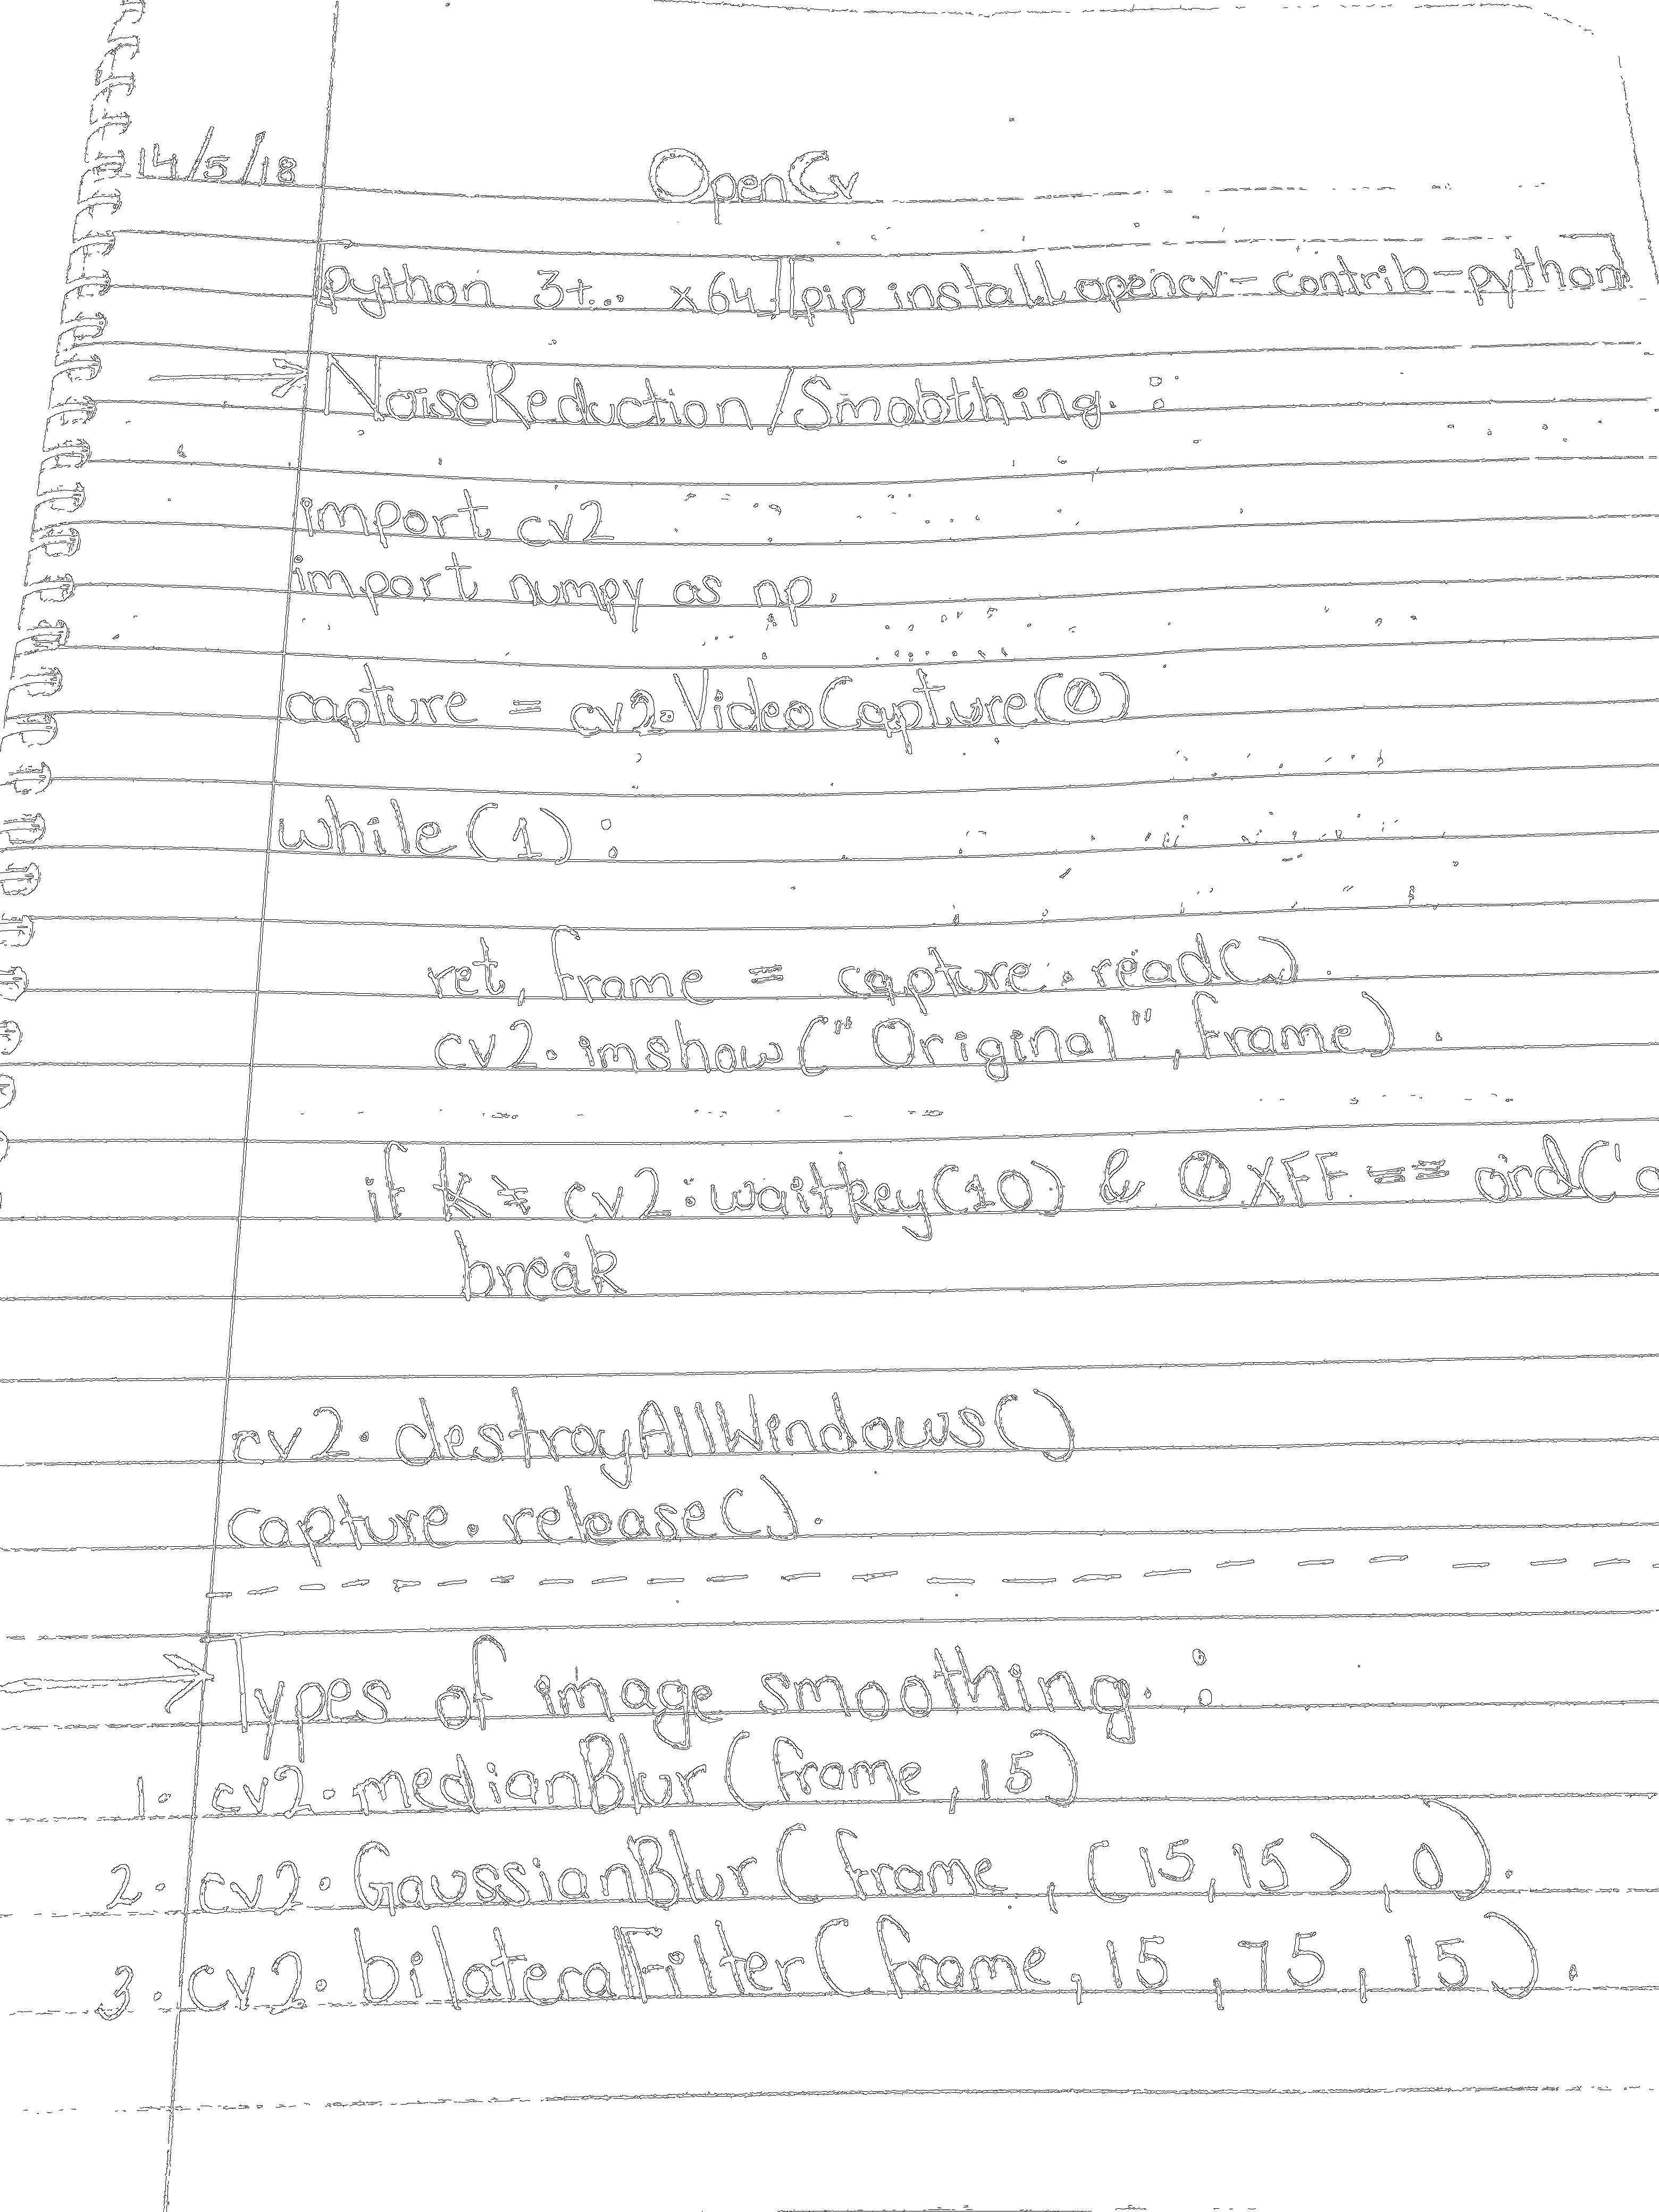 14/5/18
OpenCv
[python 3+... x64] [pip install opencv-contrib-python]
→ NoiseReduction/Smoothing. :
import cv2
import numpy as np.
capture = cv2.VideoCapture(0)
while(1):
ret, frame = capture.read().
cv2.imshow("Original", frame).
if k = cv2.waitkey(10) & 0XFF == ord('
break
cv2.destroyAllWindows()
capture.release().
→ Types of image smoothing. :
1. cv2.medianBlur(frame, 15)
2. cv2.GaussianBlur(frame, (15, 15), 0).
3. cv2.bilateralFilter(frame, 15, 75, 15).